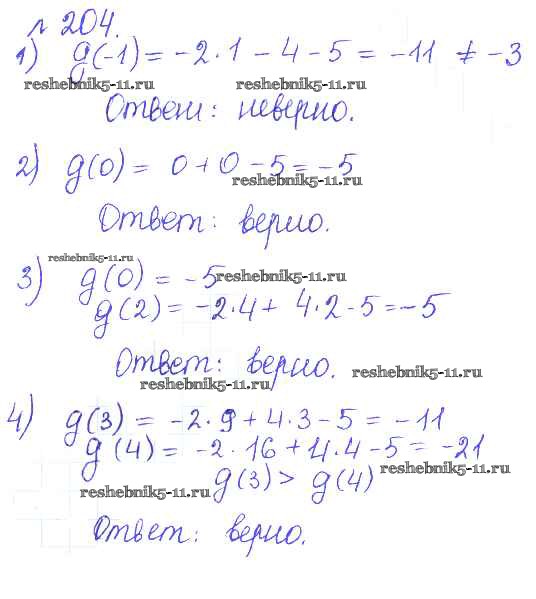 № 204.
1) g(-1) = -2·1 - 4 - 5 = -11 ≠ -3
reshebnik5-11.ru reshebnik5-11.ru
Ответ: неверно.
2) g(0) = 0 + 0 - 5 = -5
reshebnik5-11.ru
Ответ: верно.
reshebnik5-11.ru
3) g(0) = -5
reshebnik5-11.ru
g(2) = -2·4 + 4·2 - 5 = -5
Ответ: верно.
reshebnik5-11.ru
reshebnik5-11.ru
4) g(3) = -2·9 + 4·3 - 5 = -11
g(4) = -2·16 + 4·4 - 5 = -21
reshebnik5-11.ru
g(3) > g(4)
reshebnik5-11.ru
Ответ: верно.